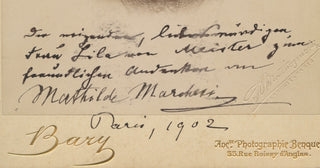 Der reizenden, liebenswürdigen
Frau Lila von Meister zum
freundlichen Andenken von
Mathilde Marchesi
Paris, 1902
Bary
Ancne. Photographie Benque
33, Rue Boissy d'Anglas.